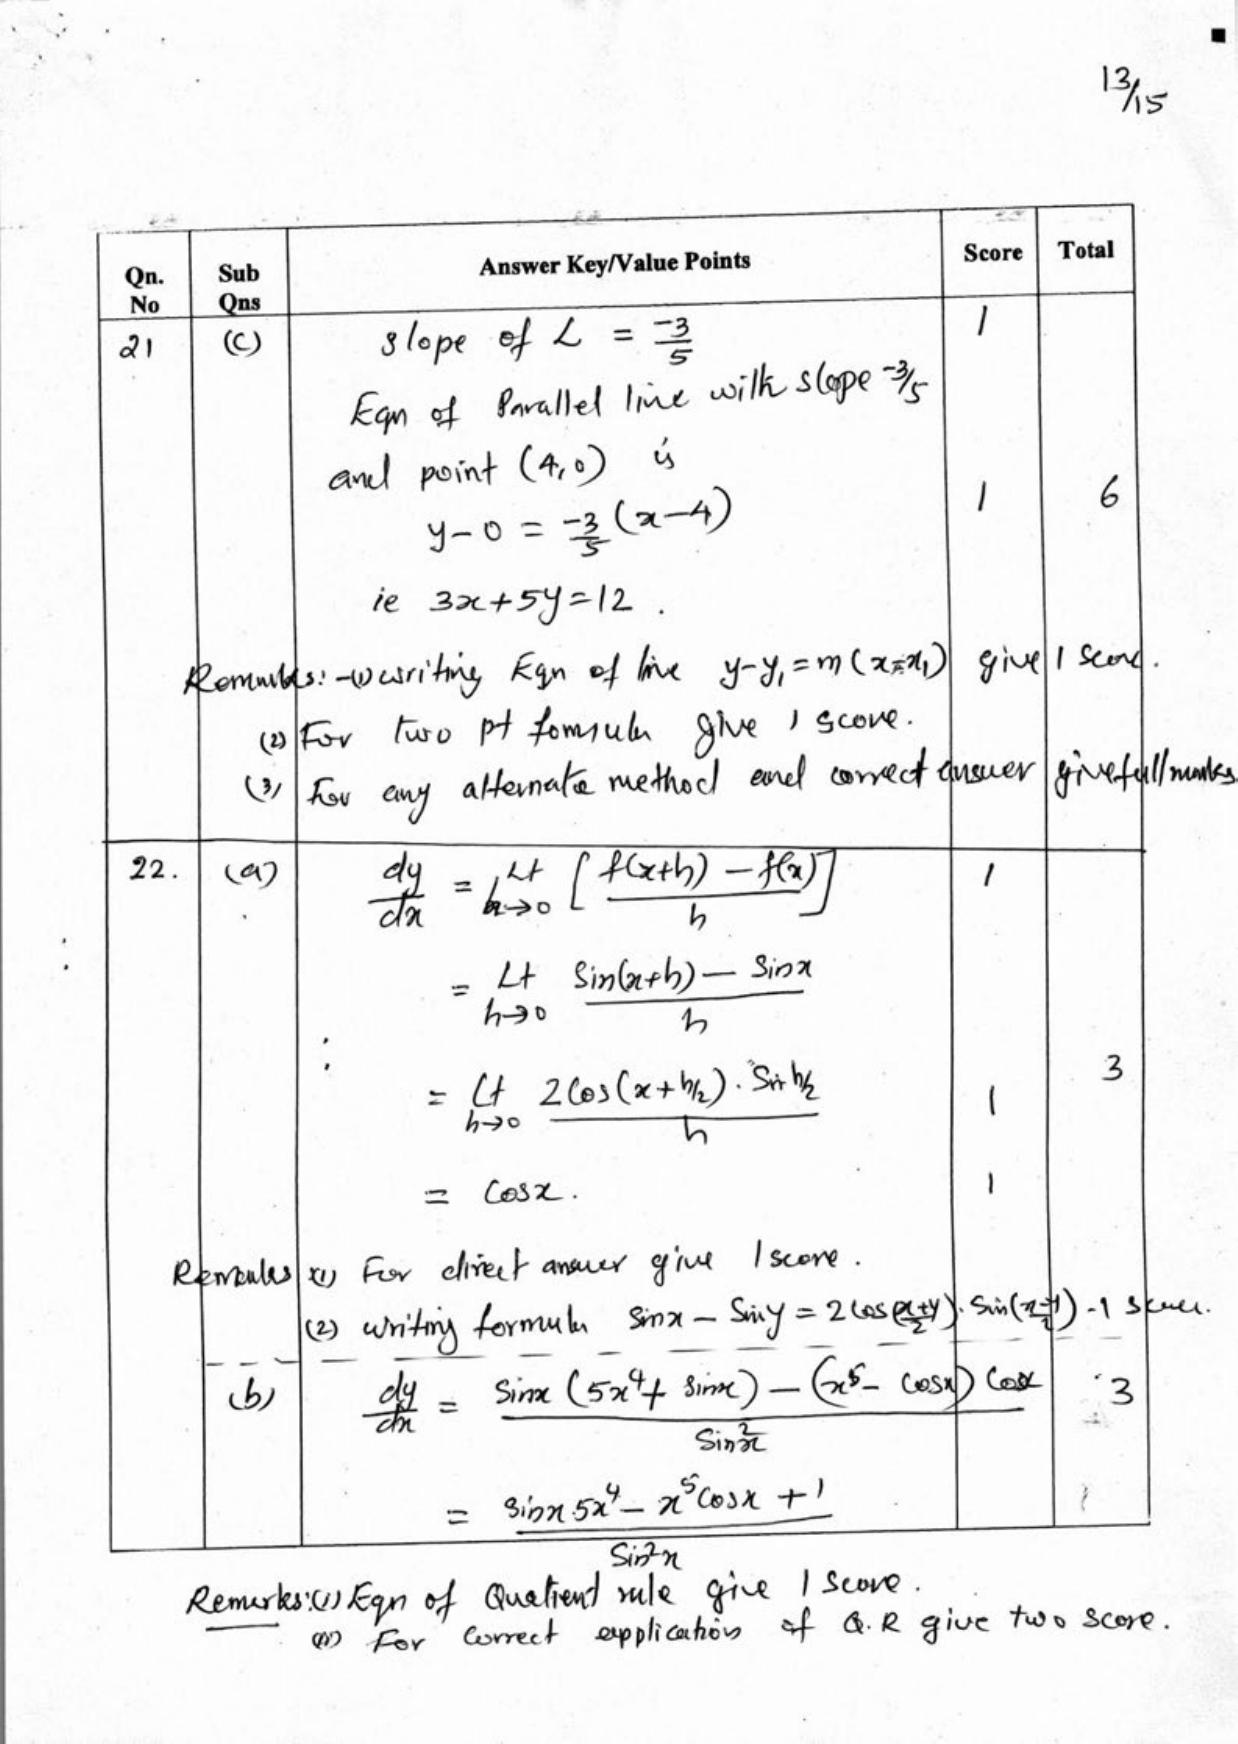 13/15
Qn. No | Sub Qns | Answer Key/Value Points | Score | Total
21 (C) slope of L = -3/5 1
Eqn of Parallel line with slope -3/5
and point (4,0) is
y-0 = -3/5 (x-4) 1 6
ie 3x+5y=12 .
Remarks:-(1) writing Eqn of line y-y₁=m(x-x₁) give 1 score.
(2) For two pt formula give 1 score.
(3) For any alternate method and correct answer give full marks
22. (a) dy/dx = Lt h→0 [ f(x+h) - f(x) / h ] 1
= Lt h→0 Sin(x+h) - Sinx / h
= Lt h→0 2Cos(x+h/2). Sin h/2 / h 1 3
= Cosx. 1
Remarks (1) For direct answer give 1 score.
(2) writing formula Sinx - Siny = 2Cos(x+y/2). Sin(x-y/2) - 1 score.
(b) dy/dx = Sinx (5x⁴+ sinx) - (x⁵- Cosx) Cosx / Sin²x 3
= Sinx.5x⁴ - x⁵Cosx +1 / Sin²x
Remarks:(i) Eqn of Quotient rule give 1 Score.
(ii) For Correct application of Q.R give two score.